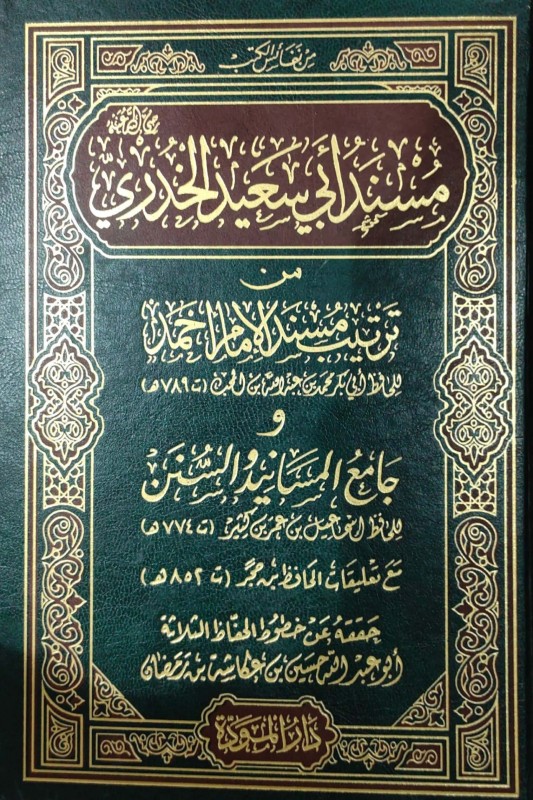 من نفائس الكتب
مُسْنَدُ أَبِي سَعِيْدٍ الْخُدْرِيِّ
رضي الله عنه
من
ترتيب مُسْنَد الإمام أحمد
للحافظ أبي بكر محمد بن عبد الله بن المحب (ت ٧٨٩ هـ)
و
جامع المسانيد والسُّنَن
للحافظ إسماعيل بن عمر بن كثير (ت ٧٧٤ هـ)
مع تعليقات الحافظ ابن حجر (ت ٨٥٢ هـ)
حققه عن خطوط الحفاظ الثلاثة
أبو عبد الله حسين بن عكاشة بن رمضان
دار المودة